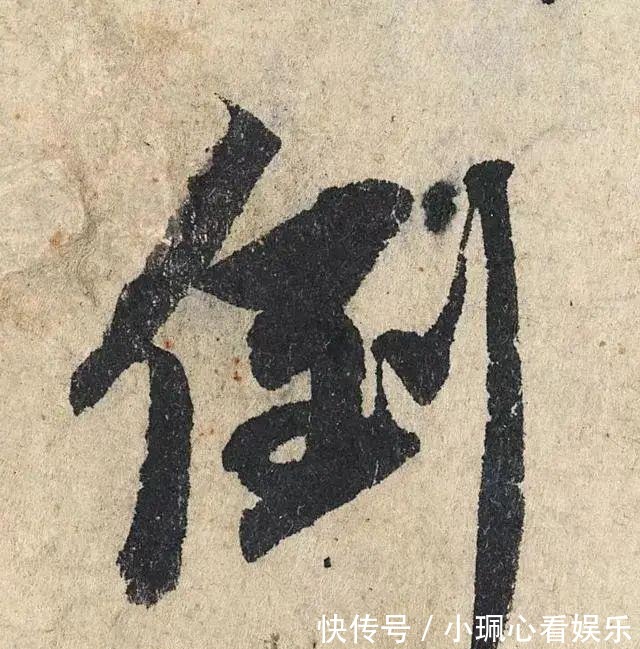 倒
快传号／小珮心看娱乐